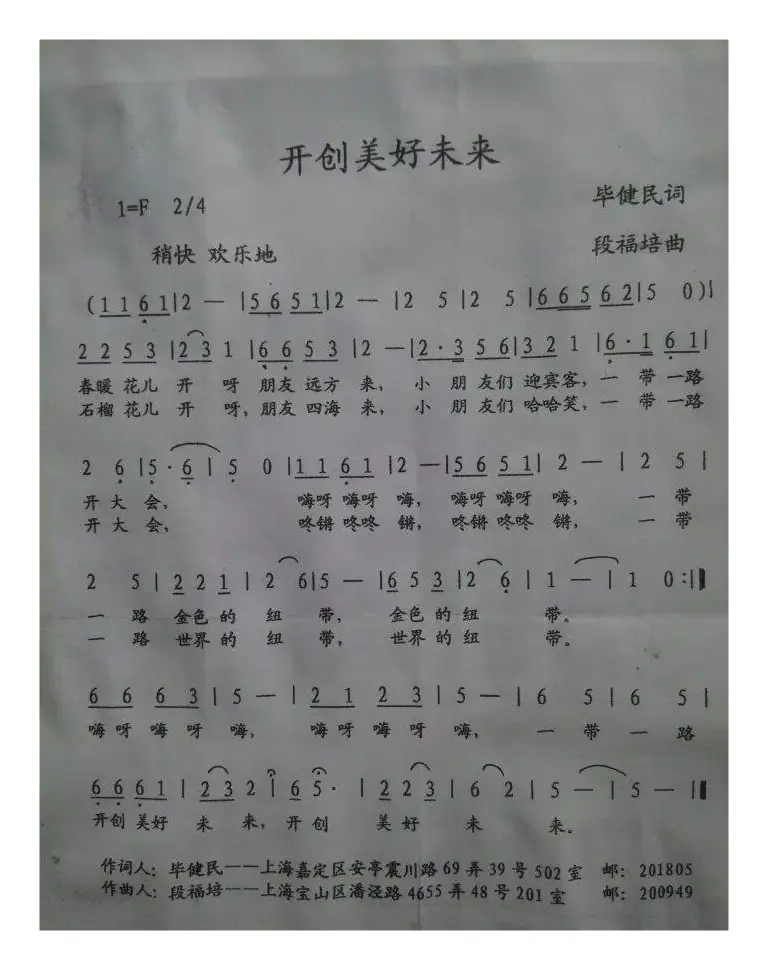 开创美好未来
1=F 2/4
毕健民词
稍快 欢乐地
段福培曲
(1 1 6 1|2 — |5 6 5 1|2 — |2 5 |2 5 |6 6 5 6 2|5 0)|
2 2 5 3 |2 3 1 |6 6 5 3 |2 —|2· 3 5 6|3 2 1 |6· 1 6 1|
春暖 花儿 开 呀 朋友 远方 来, 小 朋 友们 迎宾客, 一 带 一路
石榴 花儿 开 呀, 朋友 四海 来, 小 朋 友们 哈哈笑, 一 带 一路
2 6 |5· 6 | 5 0 |1 1 6 1 |2 —|5 6 5 1| 2 — | 2 5 |
开 大 会, 嗨呀 嗨呀 嗨, 嗨呀 嗨呀 嗨, 一 带
开 大 会, 咚锵 咚咚 锵, 咚锵 咚咚 锵, 一 带
2 5 | 2 2 1 | 2 6|5 — |6 5 3 |2 6 | 1 — | 1 0 :‖
一 路 金色 的 纽 带, 金色 的 纽 带。
一 路 世界 的 纽 带, 世界 的 纽 带。
6 6 6 3 | 5 — | 2 1 2 3 | 5 — | 6 5 | 6 5 |
嗨 呀 嗨 呀 嗨, 嗨 呀 嗨 呀 嗨, 一 带 一 路
6 6 6 1 | 2 3 2 | 6 5· | 2 2 3 | 6 2 | 5 — | 5 — ‖
开创 美好 未 来, 开 创 美 好 未 来。
作词人: 毕健民——上海嘉定区安亭震川路 69 弄 39 号 502 室 邮: 201805
作曲人: 段福培——上海宝山区潘泾路 4655 弄 48 号 201 室 邮: 200949